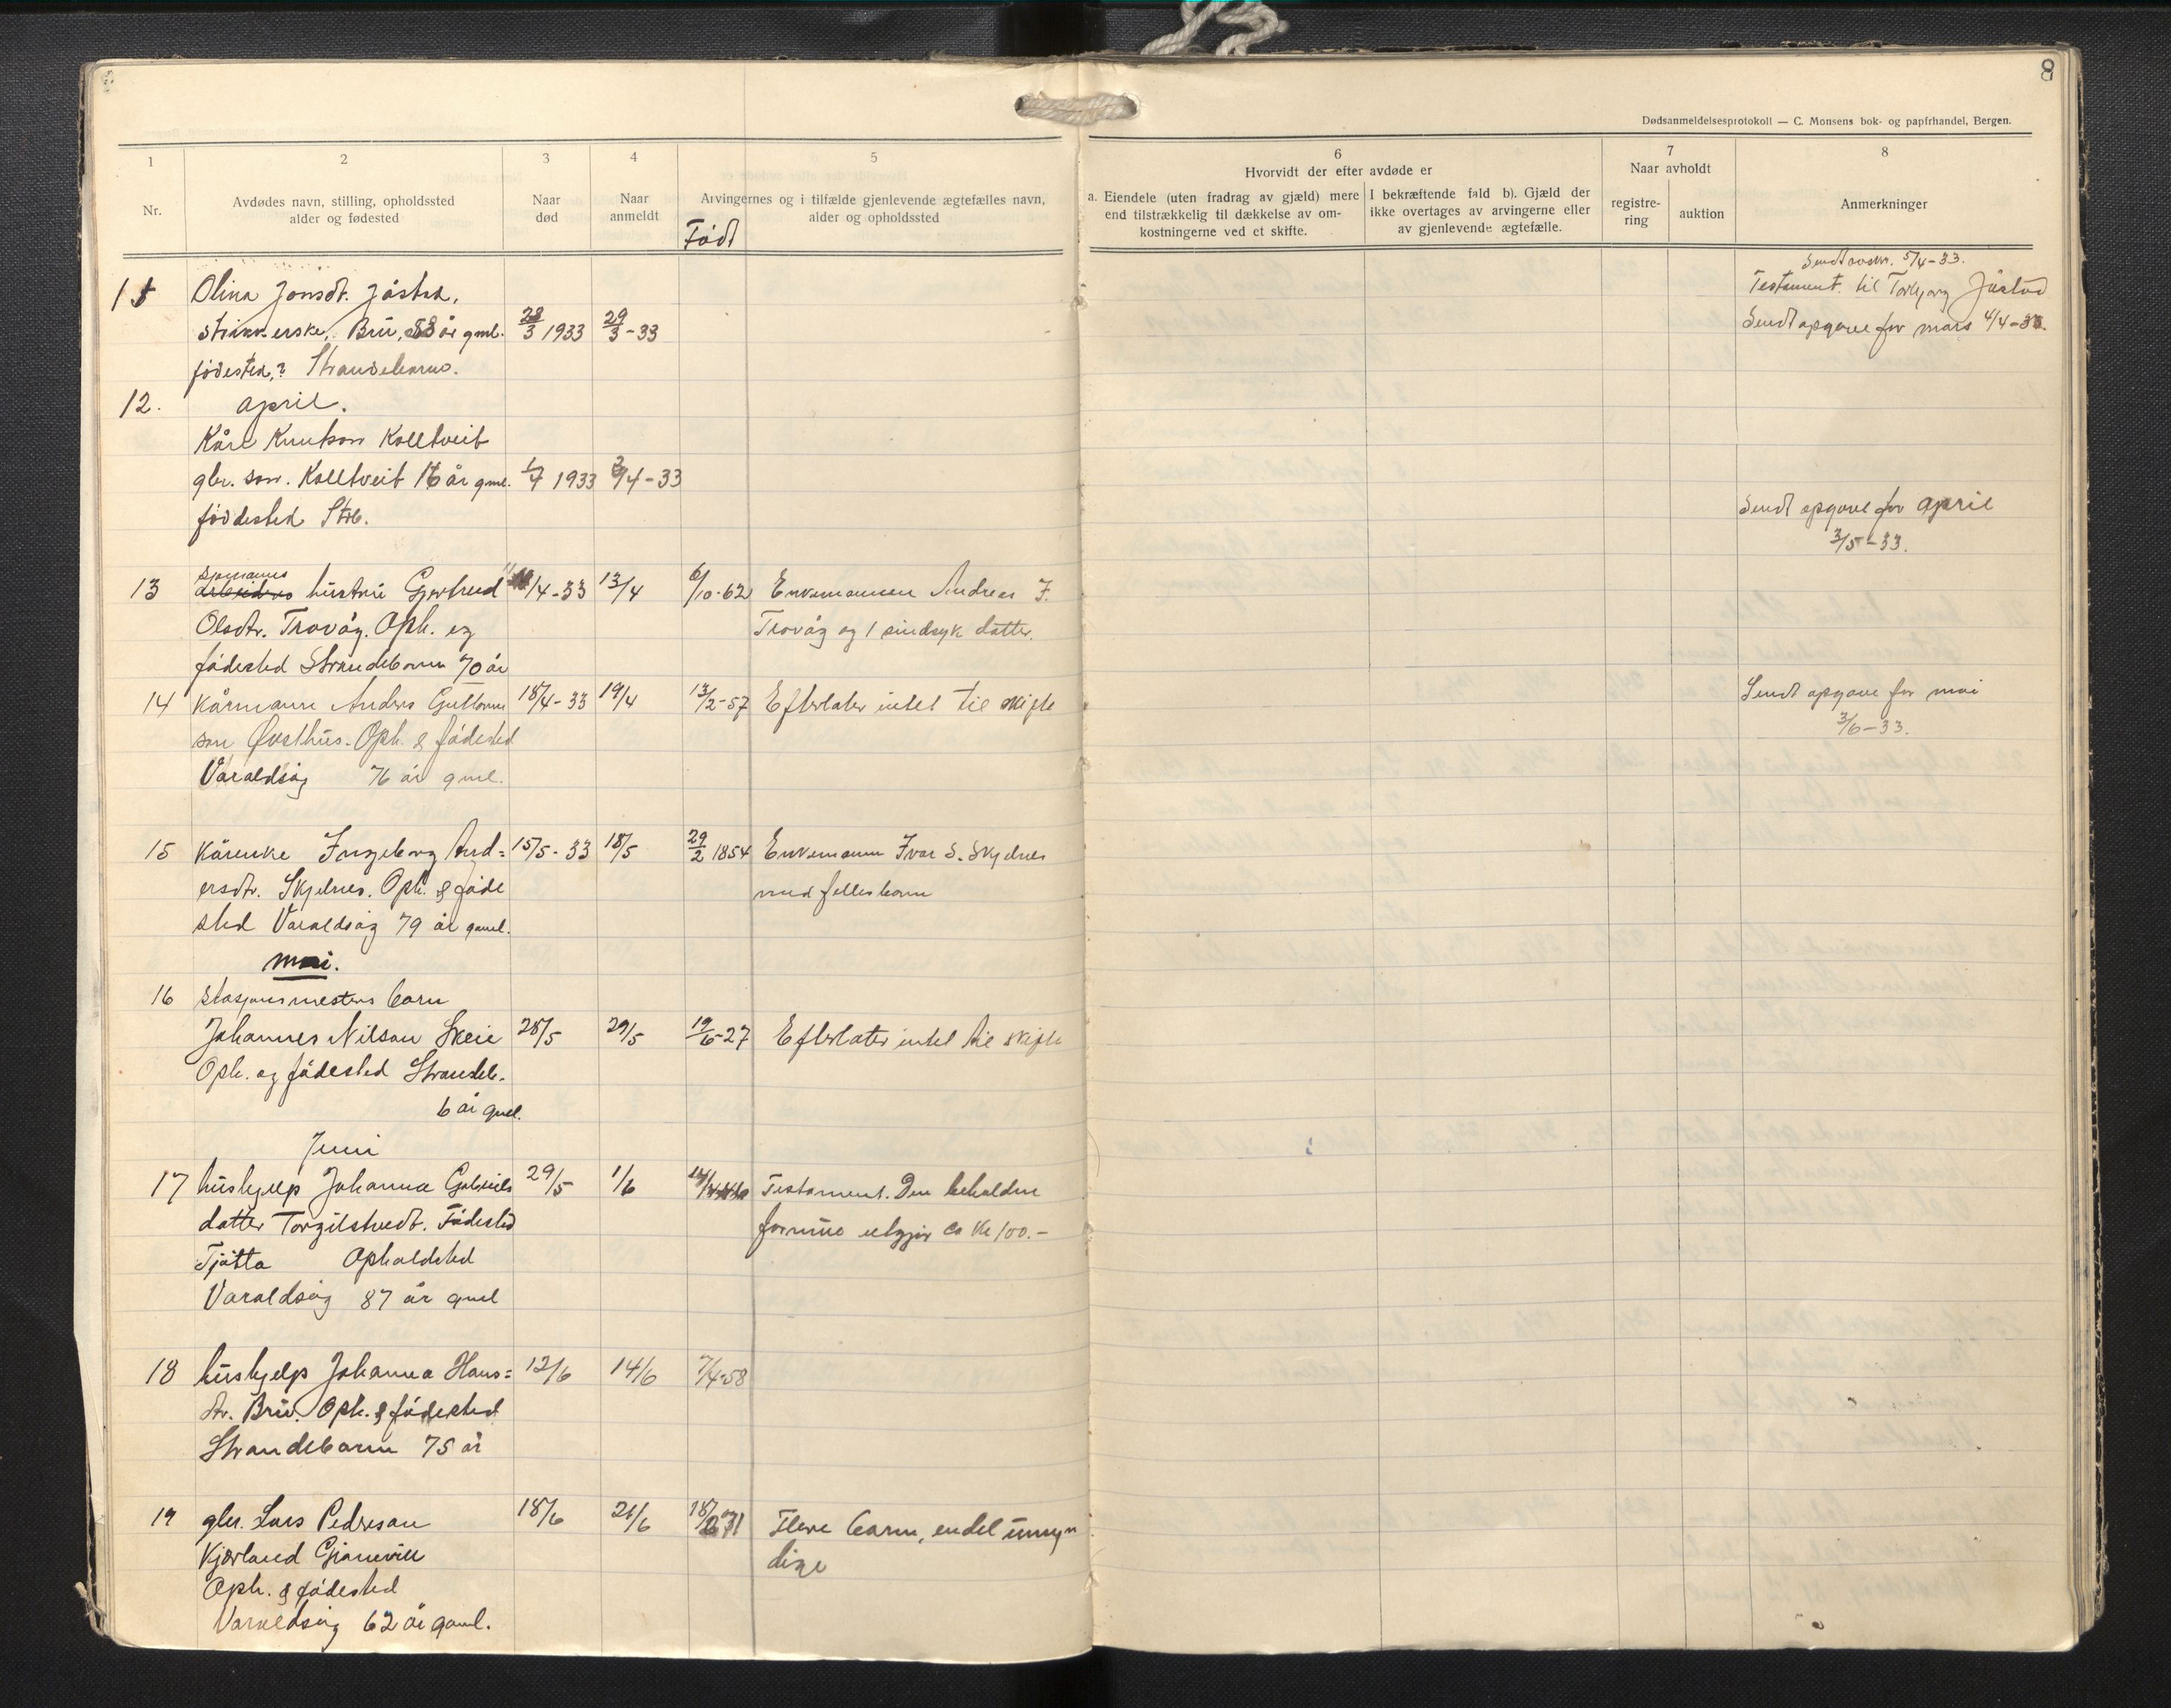 8
Dødsanmeldelsesprotokoll — C. Monsens bok- og papirhandel, Bergen.
1
Nr.
2
Avdødes navn, stilling, opholdssted
alder og fødested
3
Naar
død
4
Naar
anmeldt
5
Arvingernes og i tilfælde gjenlevende ægtefælles navn,
alder og opholdssted
Født
6
Hvorvidt der efter avdøde er
a. Eiendele (uten fradrag av gjæld) mere
end tilstrækkelig til dækkelse av om-
kostningerne ved et skifte.
I bekræftende fald b). Gjæld der
ikke overtages av arvingerne eller
av gjenlevende ægtefælle.
7
Naar avholdt
registre-
ring
auktion
8
Anmerkninger
11 Olina Jonsdt. Jåstad,
strikkerske, Bru, 88 år gml. 28/3 1933 29/3-33
fødested,? Strandebarm.
5/4-33.
Testament til Torbjørg Jåstad
Sendt opgave for mars 4/4-33.
12. april.
Kåre Knutson Kolltveit
gbr. son. Kolltveit 16 år gml. 1/4 1933 3/4-33
fødested Strb.
Sendt opgave for april
3/5-33.
13 hustru Gjertrud 11/4-33 13/4 6/10-62 Enkemannen Andreas J.
Olsdtr. Trovåg. Oph. og Trovåg og 1 sindsyk datter.
fødested Strandebarm 70 år
14 Kårmann Anders Guttorm 18/4-33 19/4 13/2-57 Efterlater intet til skifte
son Øvsthus. Oph. & fødested
Varaldsøy 76 år gml.
Sendt opgave for mai
3/6-33.
15 Kårenke Ingeborg And= 15/5-33 18/5 29/2 1854 Enkemann Ivar S. Skjelnes
ersdtr. Skjelnes. Oph. & føde med felles barn
sted Varaldsøy 79 år gaml.
mai.
16 Stasjonsmesters barn
Johannes Nilson Skeie 28/5 29/5 19/6-27 Efterlater intet til skifte
Oph. og fødested Strandeb.
6 år gml.
Juni
17 hushjelp Johanna Gabriels 29/5 1/6 Testament. Den beholdne
datter Torgilstvedt. Fødested formue utgjør ca kr 100.-
Tjøtta Opholdsted
Varaldsøy 87 år gml
18 hushjelp Johanna Hans= 12/6 14/6 7/4-58
dtr. Bru. Oph. & fødested
Strandebarm 75 år
19 gbr. Lars Pederson 18/6 21/6 Flere barn, endel umyn
Kjærland dige
Oph. & fødested
Varaldsøy 62 år gaml.